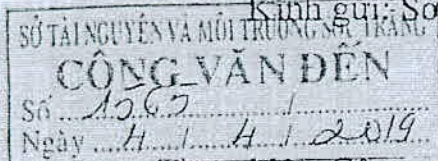 Kính gửi: Sở
SỞ TÀI NGUYÊN VÀ MÔI TRƯỜNG SÓC TRĂNG
CÔNG VĂN ĐẾN
Số
Ngày 4 / 4 / 2019